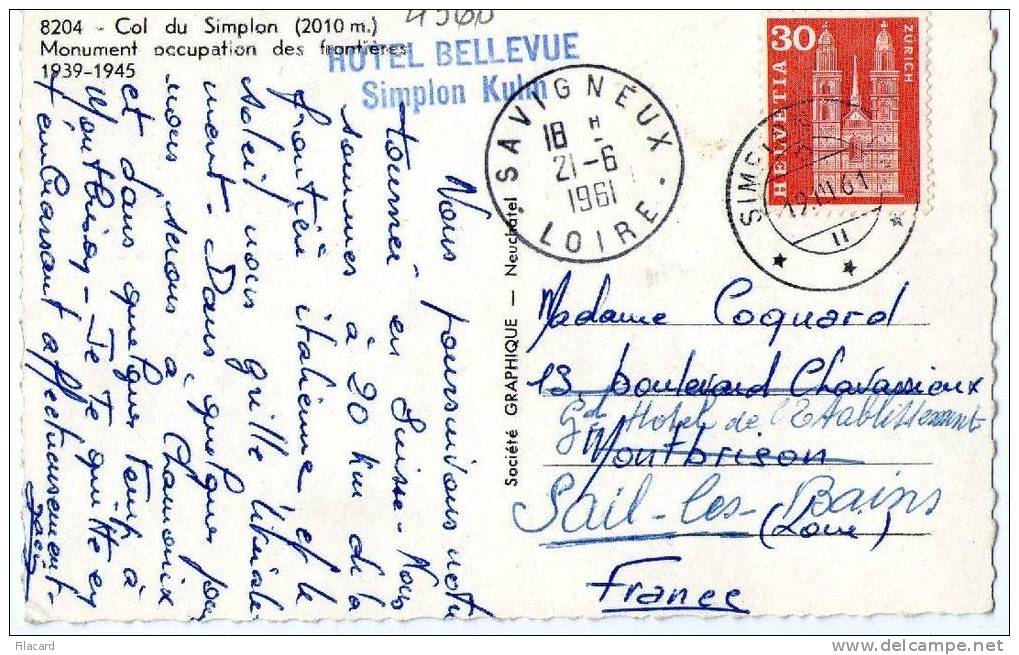 8204 - Col du Simplon (2010 m.)
Monument occupation des frontières
1939-1945
4566
HOTEL BELLEVUE
Simplon Kulm
SAVIGNEUX
18 H
21-6
1961
LOIRE
30
HELVETIA
ZÜRICH
19.VI.61
11
Nous poursuivons notre
tournée en Suisse - Nous
sommes à 20 km de la
frontière italienne et le
soleil nous grille littérale-
ment - Dans quelques jours
nous serons à Chamonix
et dans quelques temps à
Montbrison - Je te quitte en
t'embrassant affectueusement -
Société GRAPHIQUE — Neuchâtel
Madame Coquard
13 boulevard Chavassieux
Gd Hotel de l'Etablissement
Montbrison
Sail-les-Bains
(Loire)
France
Filacard
www.delcampe.net